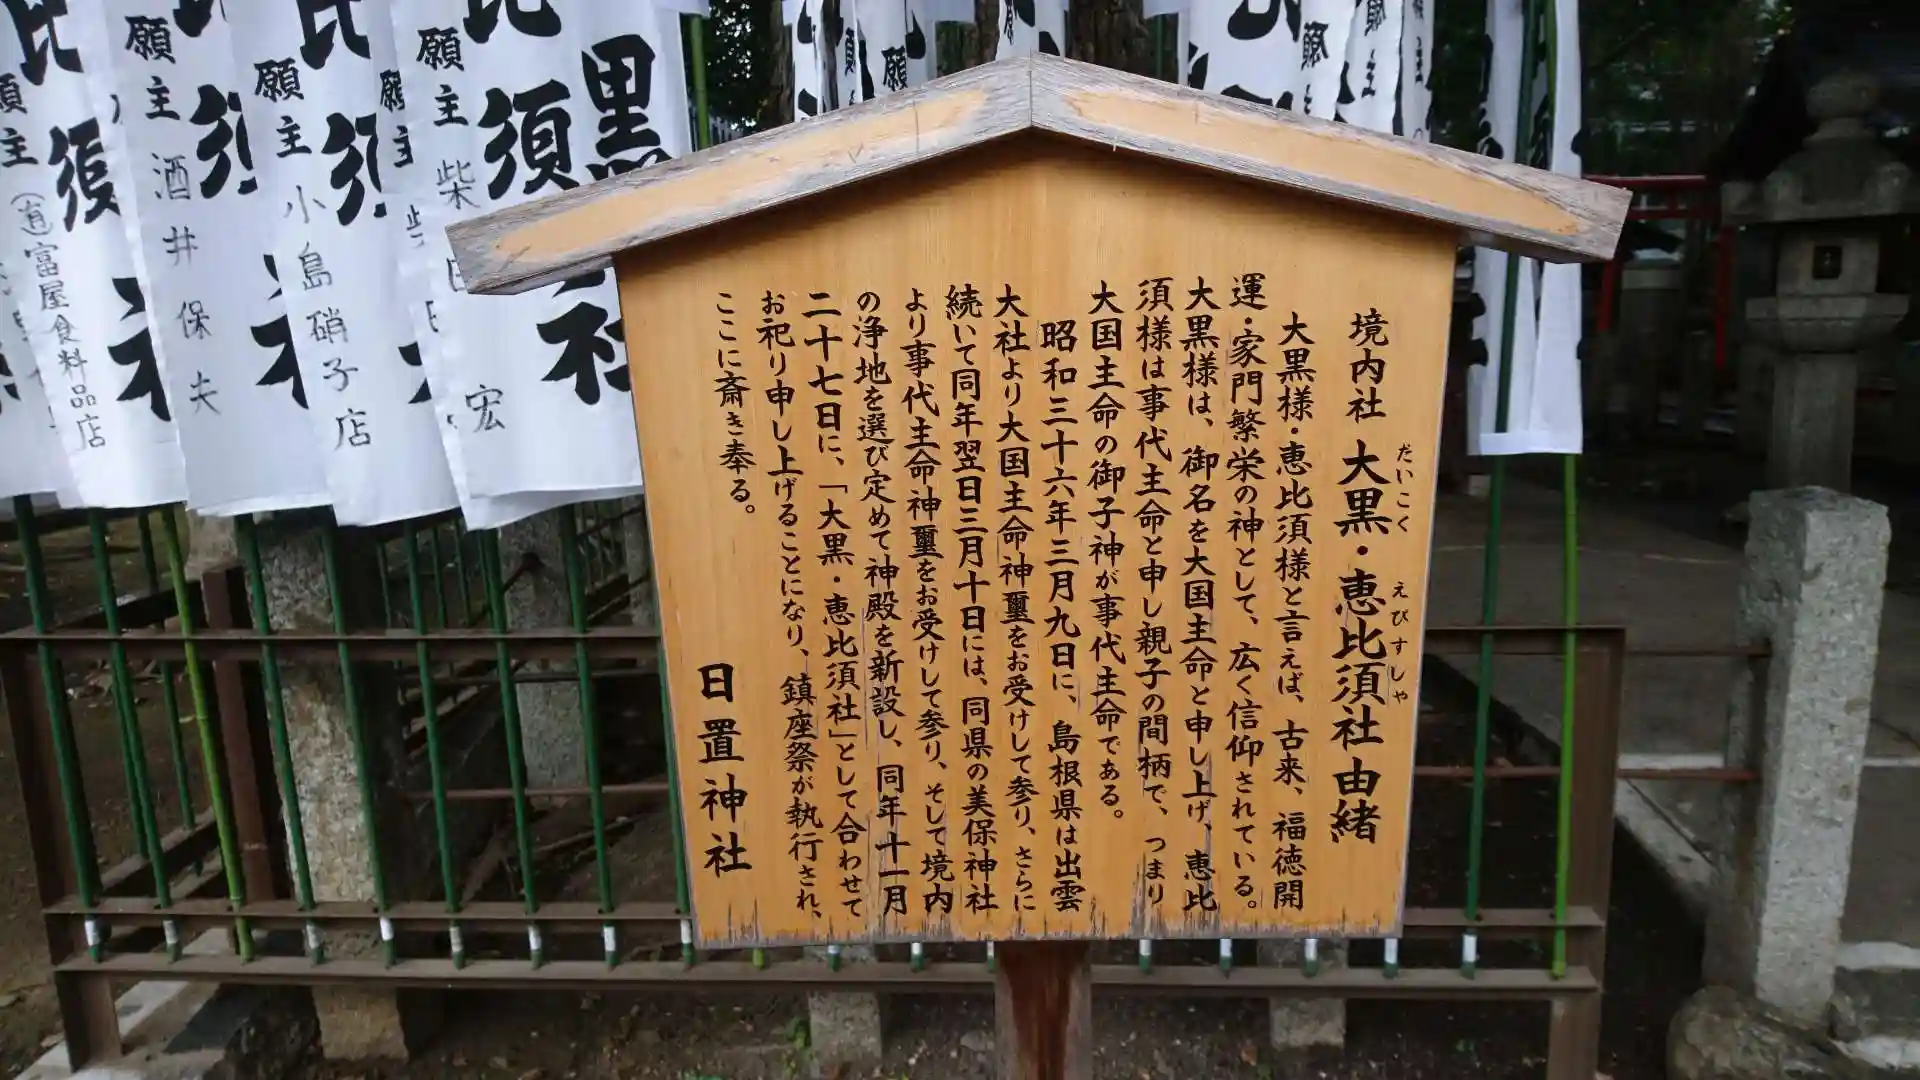 境内社 大黒・恵比須社由緒
だいこく えびすしゃ
大黒様・恵比須様と言えば、古来、福徳開
運・家門繁栄の神として、広く信仰されている。
大黒様は、御名を大国主命と申し上げ、恵比
須様は事代主命と申し親子の間柄で、つまり
大国主命の御子神が事代主命である。
昭和三十六年三月九日に、島根県は出雲
大社より大国主命神璽をお受けして参り、さらに
続いて同年翌日三月十日には、同県の美保神社
より事代主命神璽をお受けして参り、そして境内
の浄地を選び定めて神殿を新設し、同年十一月
二十七日に、「大黒・恵比須社」として合わせて
お祀り申し上げることになり、鎮座祭が執行され、
ここに斎き奉る。
日置神社
黒
社
比須
願主 柴
宏
願主
比須
願主 小島硝子店
須
願主 酒井保夫
比須
願主 (有)富屋食料品店
願
願
願主
願主